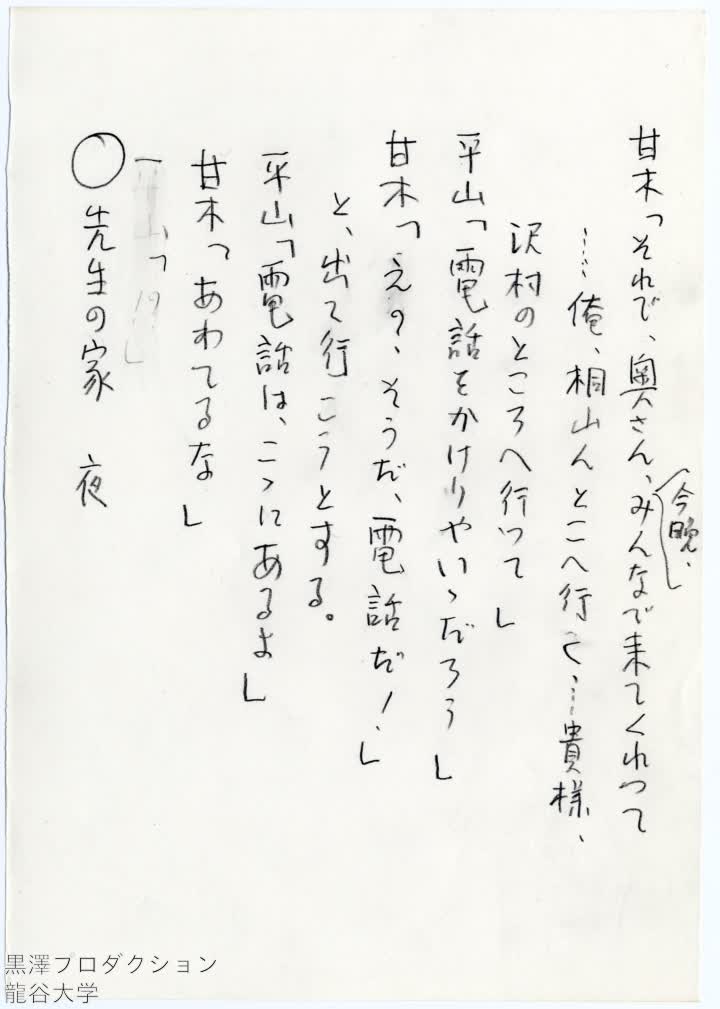 甘木「それで、奥さん、今晩、みんなで来てくれって
……俺、桐山んとこへ行く……貴様、
沢村のところへ行って」
平山「電話をかけりやいゝだろう」
甘木「えっ、そうだ、電話だ！」
と、出て行こうとする。
平山「電話は、こゝにあるよ」
甘木「あわてるな」
○先生の家　夜
黒澤プロダクション
龍谷大学